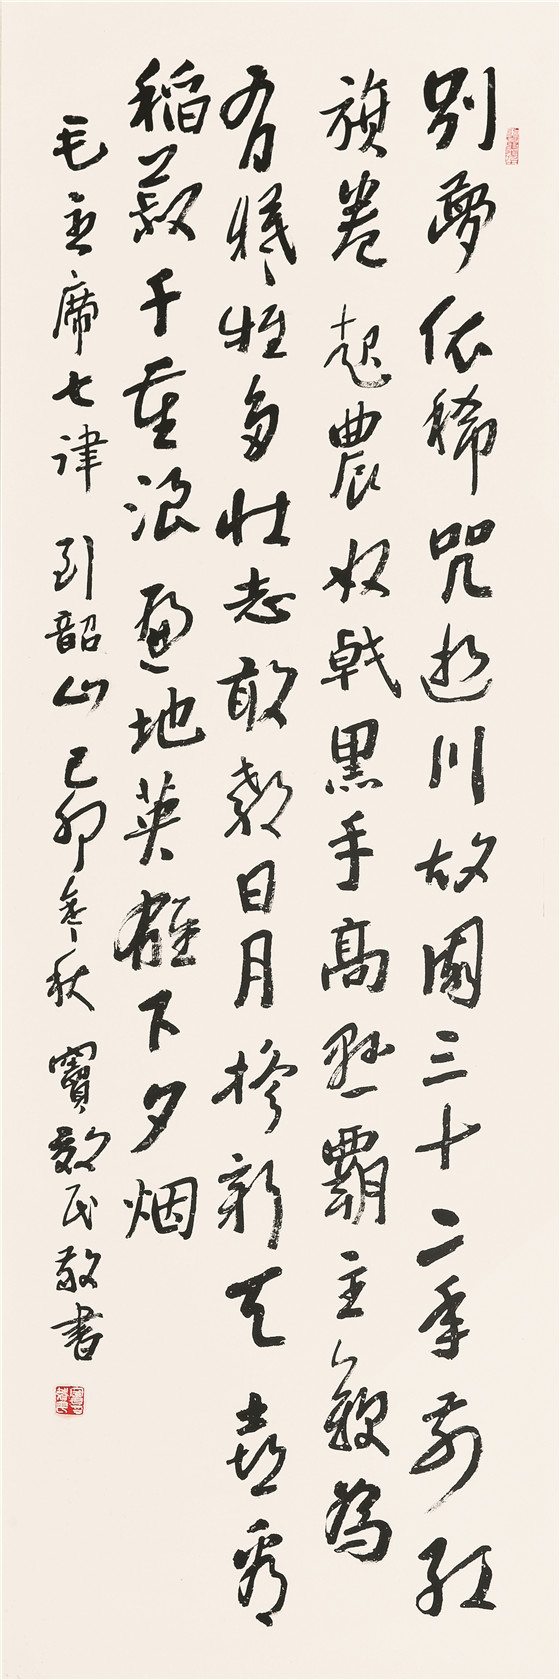 别夢依稀咒逝川故園三十二年前紅
旗卷起農奴戟黑手高懸霸主鞭為
有犧牲多壮志敢教日月換新天喜看
稻菽千重浪遍地英雄下夕烟
毛主席七律 到韶山 己卯年秋 竇效民敬書